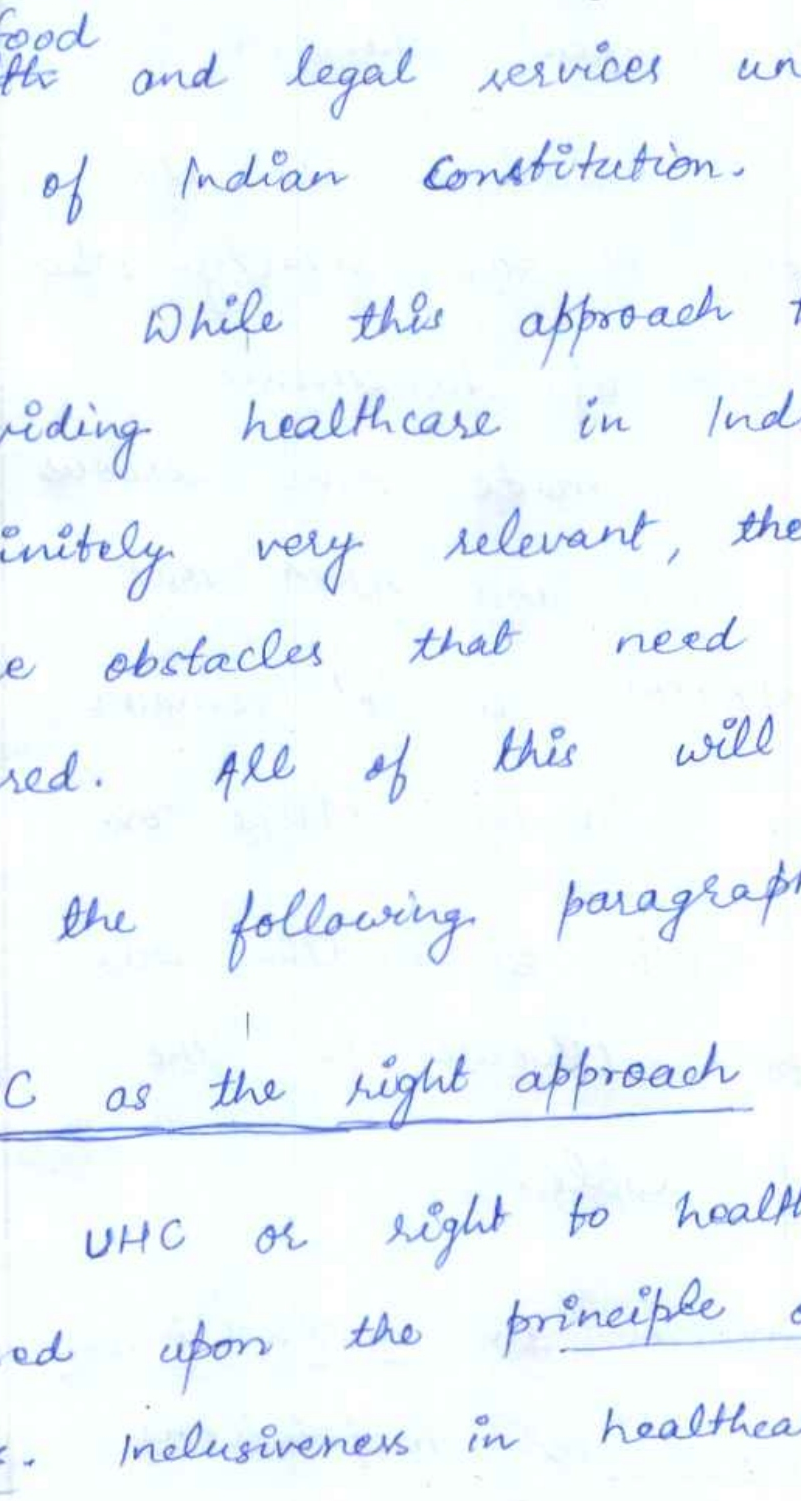 food
and legal services un
of Indian Constitution.
While this approach t
viding healthcare in Ind
initely very relevant, the
e obstacles that need
red. All of this will
the following paragraph
C as the right approach
UHC or right to health
ed upon the principle o
Inclusiveness in healthca